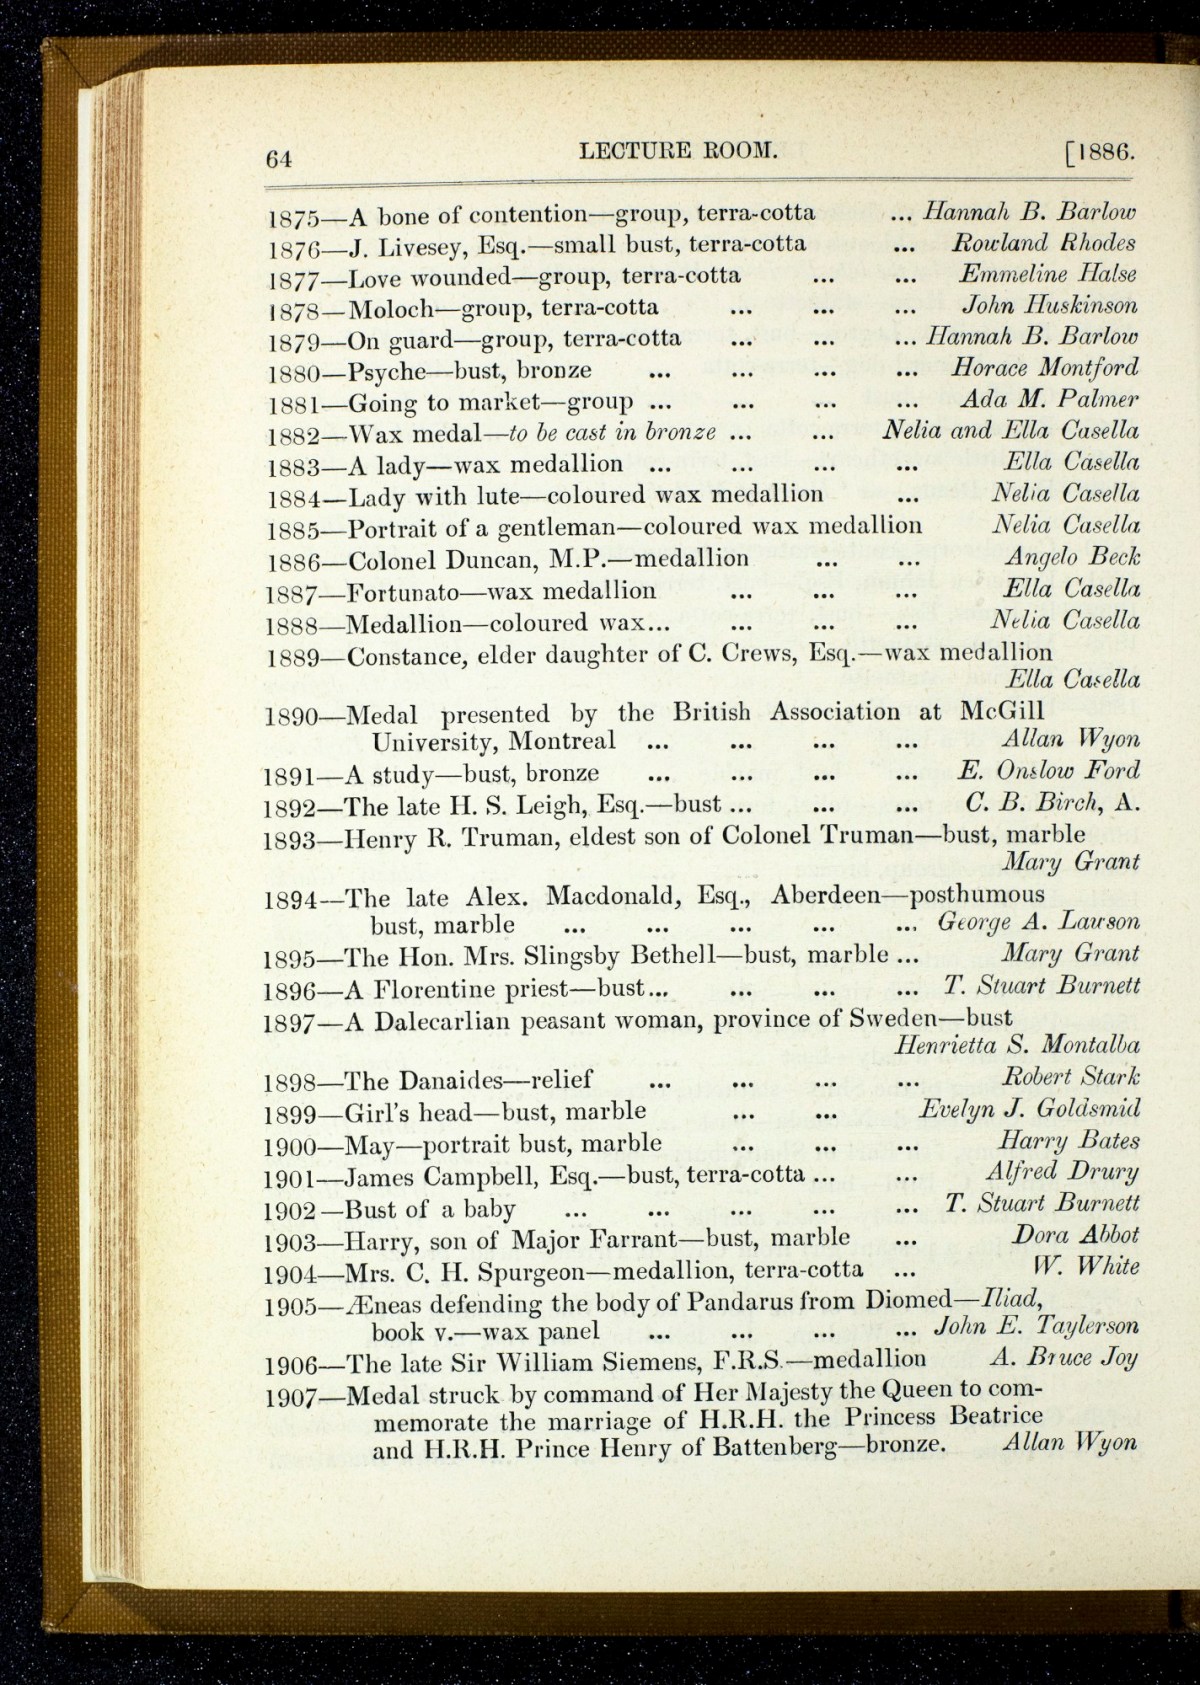 64 LECTURE ROOM. [1886.
1875—A bone of contention—group, terra-cotta ... Hannah B. Barlow
1876—J. Livesey, Esq.—small bust, terra-cotta ... Rowland Rhodes
1877—Love wounded—group, terra-cotta ... ... Emmeline Halse
1878—Moloch—group, terra-cotta ... ... ... John Huskinson
1879—On guard—group, terra-cotta ... ... ... Hannah B. Barlow
1880—Psyche—bust, bronze ... ... ... ... Horace Montford
1881—Going to market—group ... ... ... ... Ada M. Palmer
1882—Wax medal—to be cast in bronze ... ... Nelia and Ella Casella
1883—A lady—wax medallion ... ... ... ... Ella Casella
1884—Lady with lute—coloured wax medallion ... Nelia Casella
1885—Portrait of a gentleman—coloured wax medallion Nelia Casella
1886—Colonel Duncan, M.P.—medallion ... ... Angelo Beck
1887—Fortunato—wax medallion ... ... ... Ella Casella
1888—Medallion—coloured wax... ... ... ... Nelia Casella
1889—Constance, elder daughter of C. Crews, Esq.—wax medallion
Ella Casella
1890—Medal presented by the British Association at McGill
University, Montreal ... ... ... ... Allan Wyon
1891—A study—bust, bronze ... ... ... ... E. Onslow Ford
1892—The late H. S. Leigh, Esq.—bust ... ... ... C. B. Birch, A.
1893—Henry R. Truman, eldest son of Colonel Truman—bust, marble
Mary Grant
1894—The late Alex. Macdonald, Esq., Aberdeen—posthumous
bust, marble ... ... ... ... ... George A. Lawson
1895—The Hon. Mrs. Slingsby Bethell—bust, marble ... Mary Grant
1896—A Florentine priest—bust... ... ... ... T. Stuart Burnett
1897—A Dalecarlian peasant woman, province of Sweden—bust
Henrietta S. Montalba
1898—The Danaides—relief ... ... ... ... Robert Stark
1899—Girl's head—bust, marble ... ... Evelyn J. Goldsmid
1900—May—portrait bust, marble ... ... ... Harry Bates
1901—James Campbell, Esq.—bust, terra-cotta ... ... Alfred Drury
1902—Bust of a baby ... ... ... ... ... T. Stuart Burnett
1903—Harry, son of Major Farrant—bust, marble ... Dora Abbot
1904—Mrs. C. H. Spurgeon—medallion, terra-cotta ... W. White
1905—Æneas defending the body of Pandarus from Diomed—Iliad,
book v.—wax panel ... ... ... ... John E. Taylerson
1906—The late Sir William Siemens, F.R.S.—medallion A. Bruce Joy
1907—Medal struck by command of Her Majesty the Queen to com-
memorate the marriage of H.R.H. the Princess Beatrice
and H.R.H. Prince Henry of Battenberg—bronze. Allan Wyon